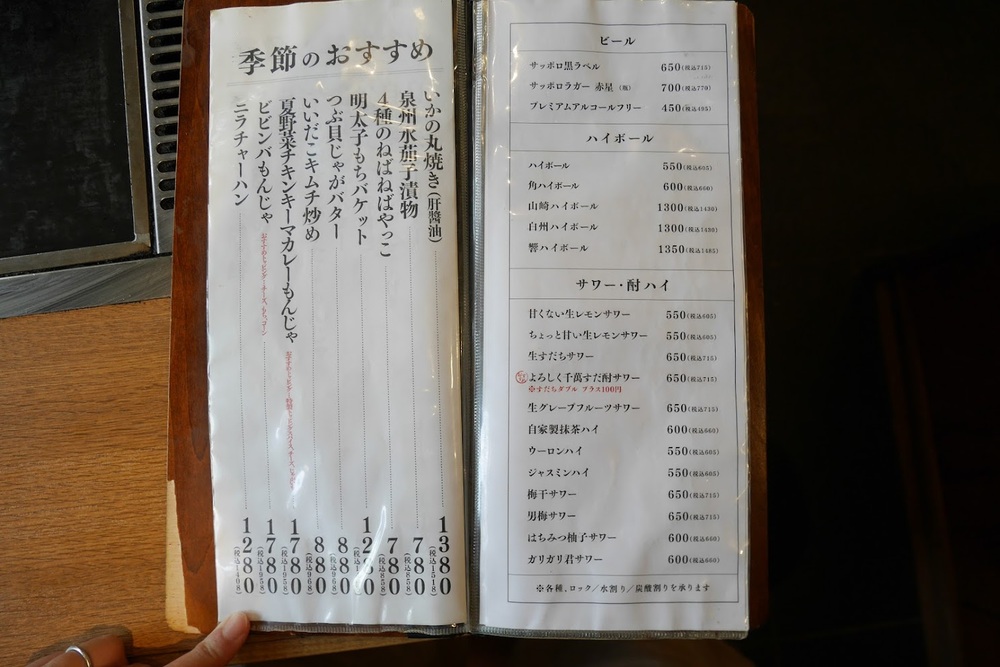 季節のおすすめ
いかの丸焼き(肝醤油) 1380(税込1518)
泉州水茄子漬物 780(税込858)
4種のねばねばやっこ 780(税込858)
明太子もちバケット
つぶ貝じゃがバター 880(税込968)
いいだこキムチ炒め 880(税込968)
夏野菜チキンキーマカレーもんじゃ 1780(税込1958)
ビビンバもんじゃ 1780(税込1958)
おすすめトッピング…チーズ、もち、コーン
ニラチャーハン 1280(税込1408)
ビール
サッポロ黒ラベル 650(税込715)
サッポロラガー 赤星 (瓶) 700(税込770)
プレミアムアルコールフリー 450(税込495)
ハイボール
ハイボール 550(税込605)
角ハイボール 600(税込660)
山崎ハイボール 1300(税込1430)
白州ハイボール 1300(税込1430)
響ハイボール 1350(税込1485)
サワー・酎ハイ
甘くない生レモンサワー 550(税込605)
ちょっと甘い生レモンサワー 550(税込605)
生すだちサワー 650(税込715)
よろしく千萬すだ酎サワー 650(税込715)
※すだちダブル プラス100円
生グレープフルーツサワー 650(税込715)
自家製抹茶ハイ 600(税込660)
ウーロンハイ 550(税込605)
ジャスミンハイ 550(税込605)
梅干サワー 650(税込715)
男梅サワー 650(税込715)
はちみつ柚子サワー 600(税込660)
ガリガリ君サワー 600(税込660)
※各種、ロック/水割り/炭酸割りを承ります